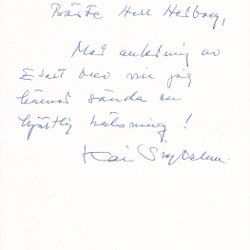 Bäste Herr Hedberg,
Med anledning av
Ert brev vill jag
härmed sända en
hjärtlig hälsning!
Kai Siegbahn